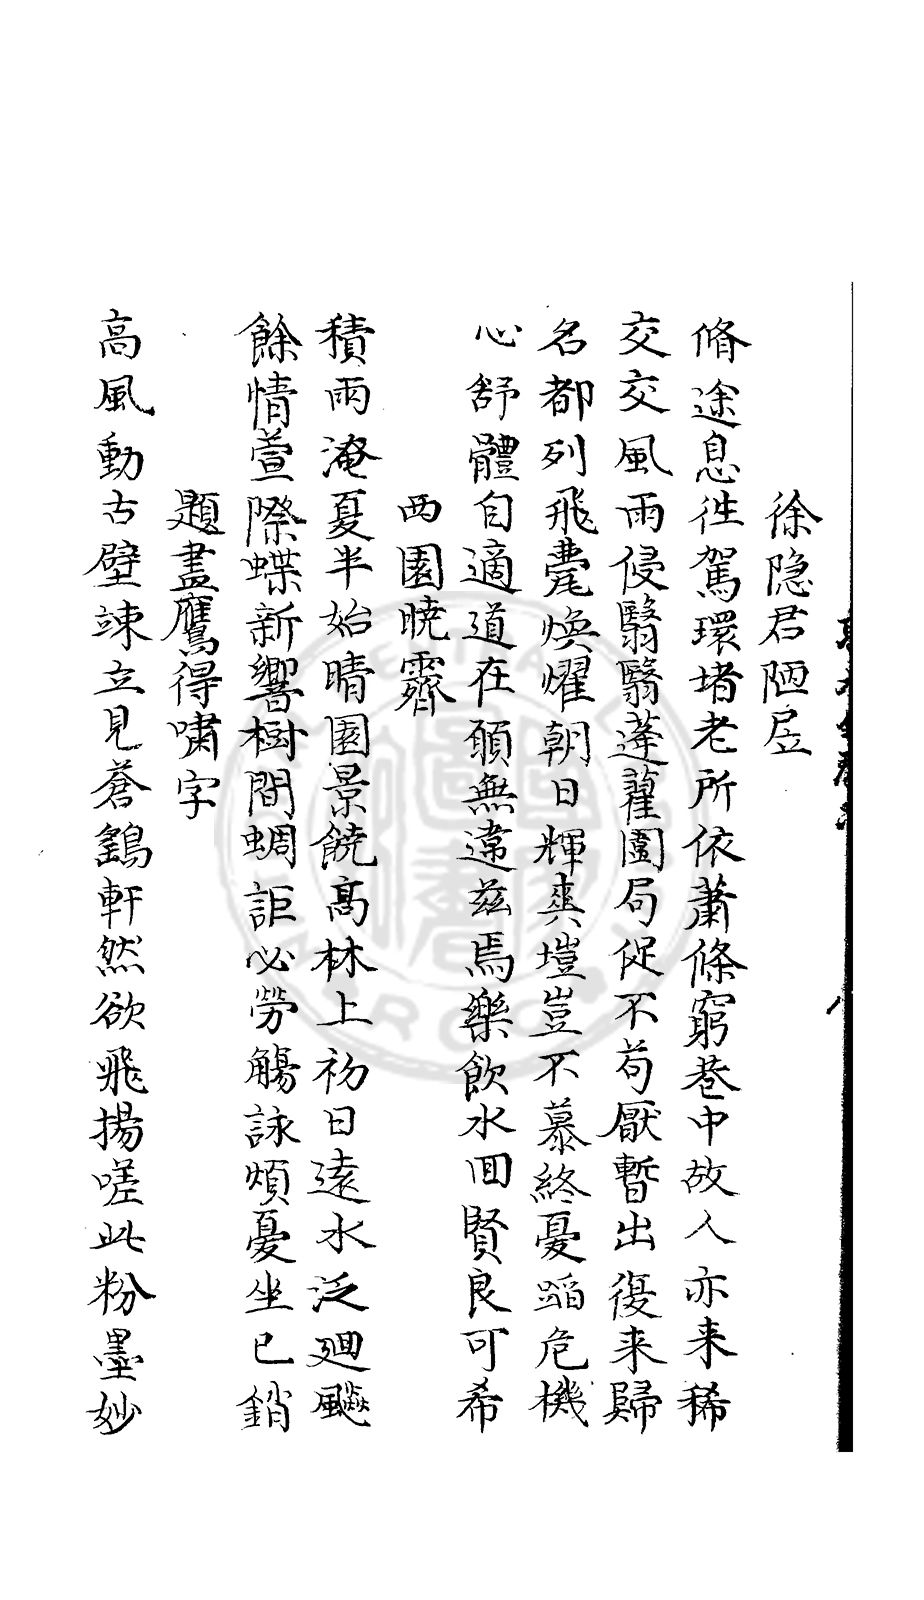 徐隐君陋㞐
脩途息徃駕環堵老所依蕭條窮巷中故人亦来稀
交交風雨侵翳翳蓬藋圍局促不苟厭暫出復来歸
名都列飛甍煥耀朝日輝爽塏豈不慕終憂蹈危機
心舒體自適道在願無違兹焉樂飲水回賢良可希
西園曉霽
積雨淹夏半始晴園景饒髙林上初日遠水泛廻飈
餘情萱際蝶新響樹間蜩詎必勞觴詠煩憂坐已銷
題畫鷹得嘯字
高風動古壁竦立見蒼鷂軒然欲飛揚嗟此粉墨妙